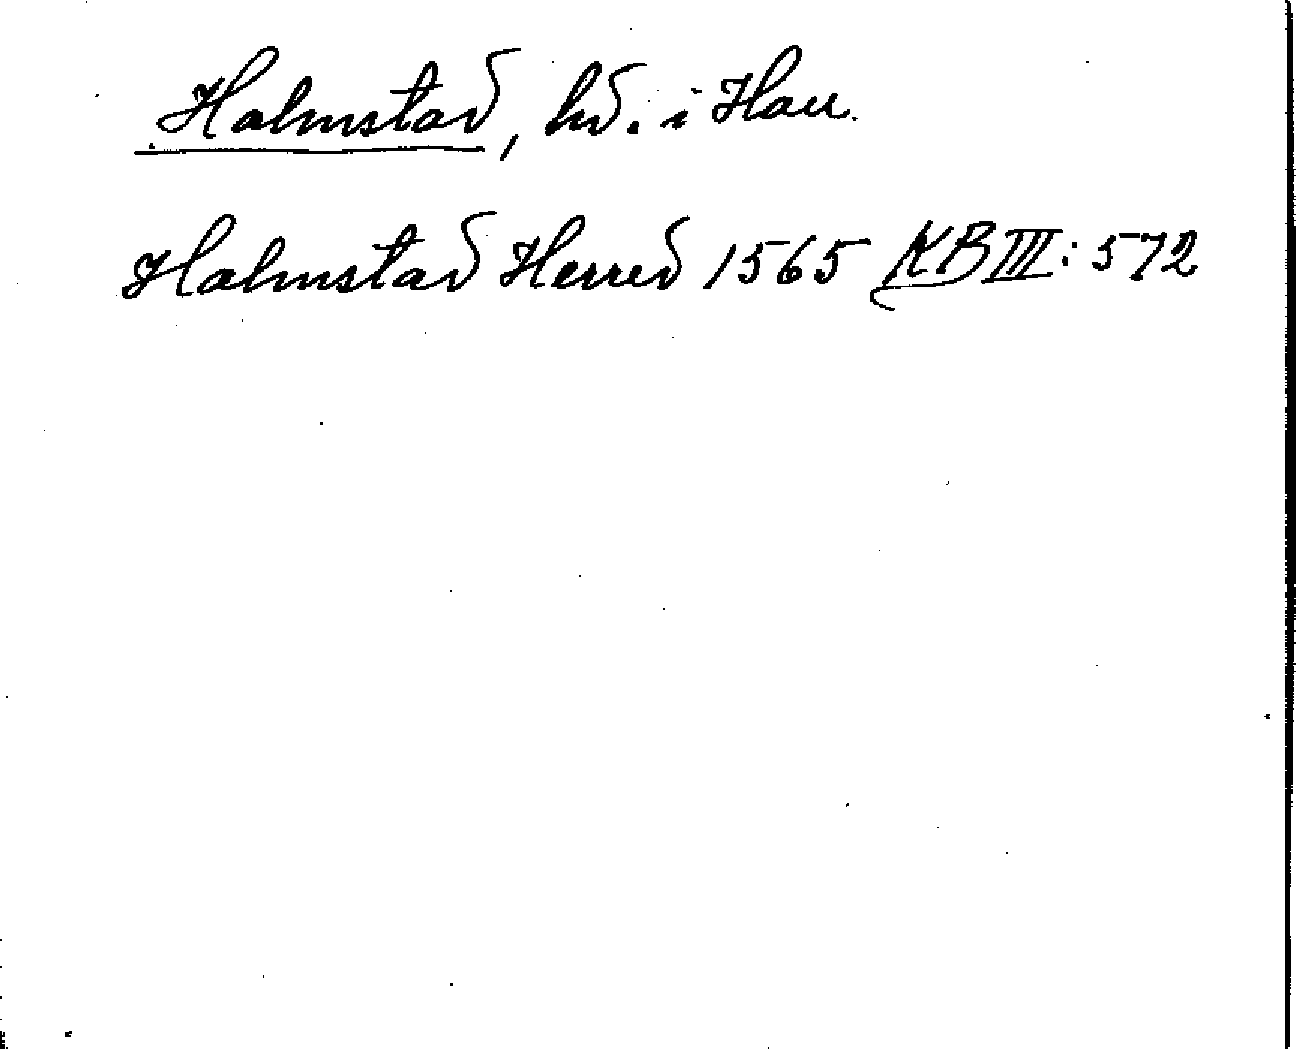 Halmstad, hd. i Hall.
Halmstad Herred 1565 KB III: 572